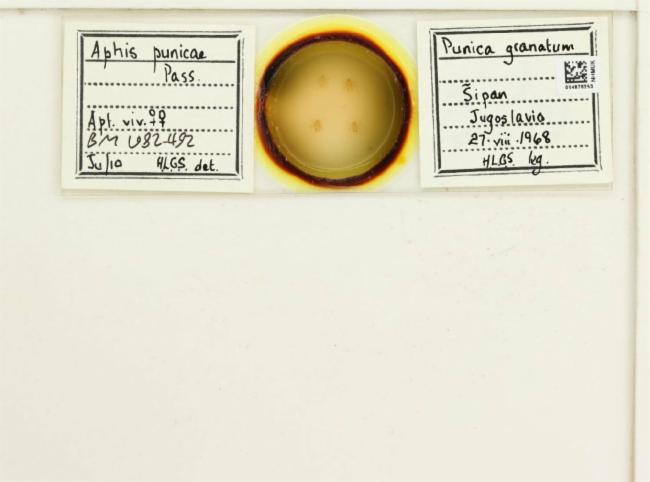 Aphis punicae
Pass.
Apt. viv. ♀♀
BM 1982-492
Ju/10 H.L.G.S. det.
Punica granatum
Šipan
Jugoslavia
27·viii·1968
H.L.G.S. leg.
NHMUK